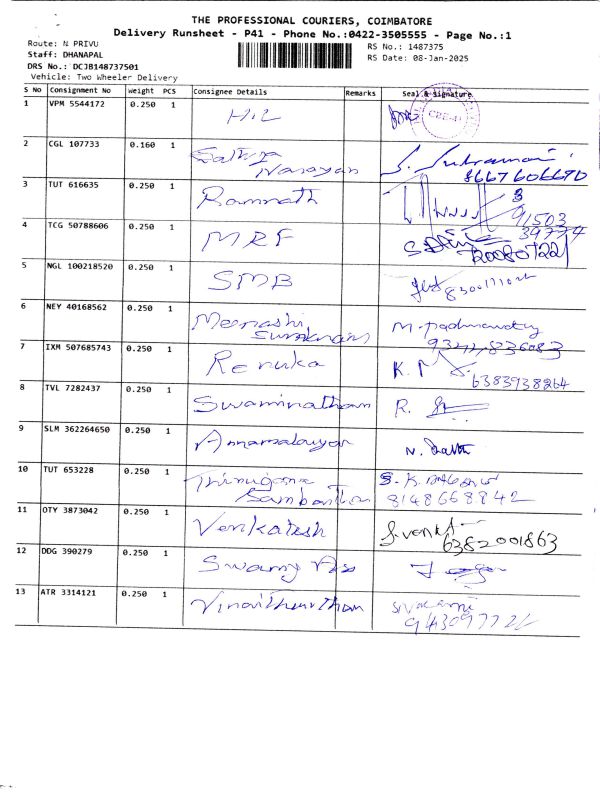 THE PROFESSIONAL COURIERS, COIMBATORE
Delivery Runsheet - P41 - Phone No.:0422-3505555 - Page No.:1
Route: N PRIVU
RS No.: 1487375
Staff: DHANAPAL
RS Date: 08-Jan-2025
DRS No.: DCJB148737501
Vehicle: Two Wheeler Delivery
S No Consignment No Weight PCS Consignee Details Remarks Seal & Signature
1 VPM 5544172 0.250 1
2 CGL 107733 0.160 1 Sathya Narayan
8667606670
3 TUT 616635 0.250 1 Ramnath
91503
39774
4 TCG 50788606 0.250 1 MRF
5 NGL 100218520 0.250 1 SMB
6 NEY 40168562 0.250 1 Meenashi
7 IXM 507685743 0.250 1 Renuka K.
6383938264
8 TVL 7282437 0.250 1 Swaminathan R.
9 SLM 362264650 0.250 1 N.
10 TUT 653228 0.250 1
8148668842
11 OTY 3873042 0.250 1 Venkatesh
6382001863
12 DDG 390279 0.250 1 Swamy
13 ATR 3314121 0.250 1